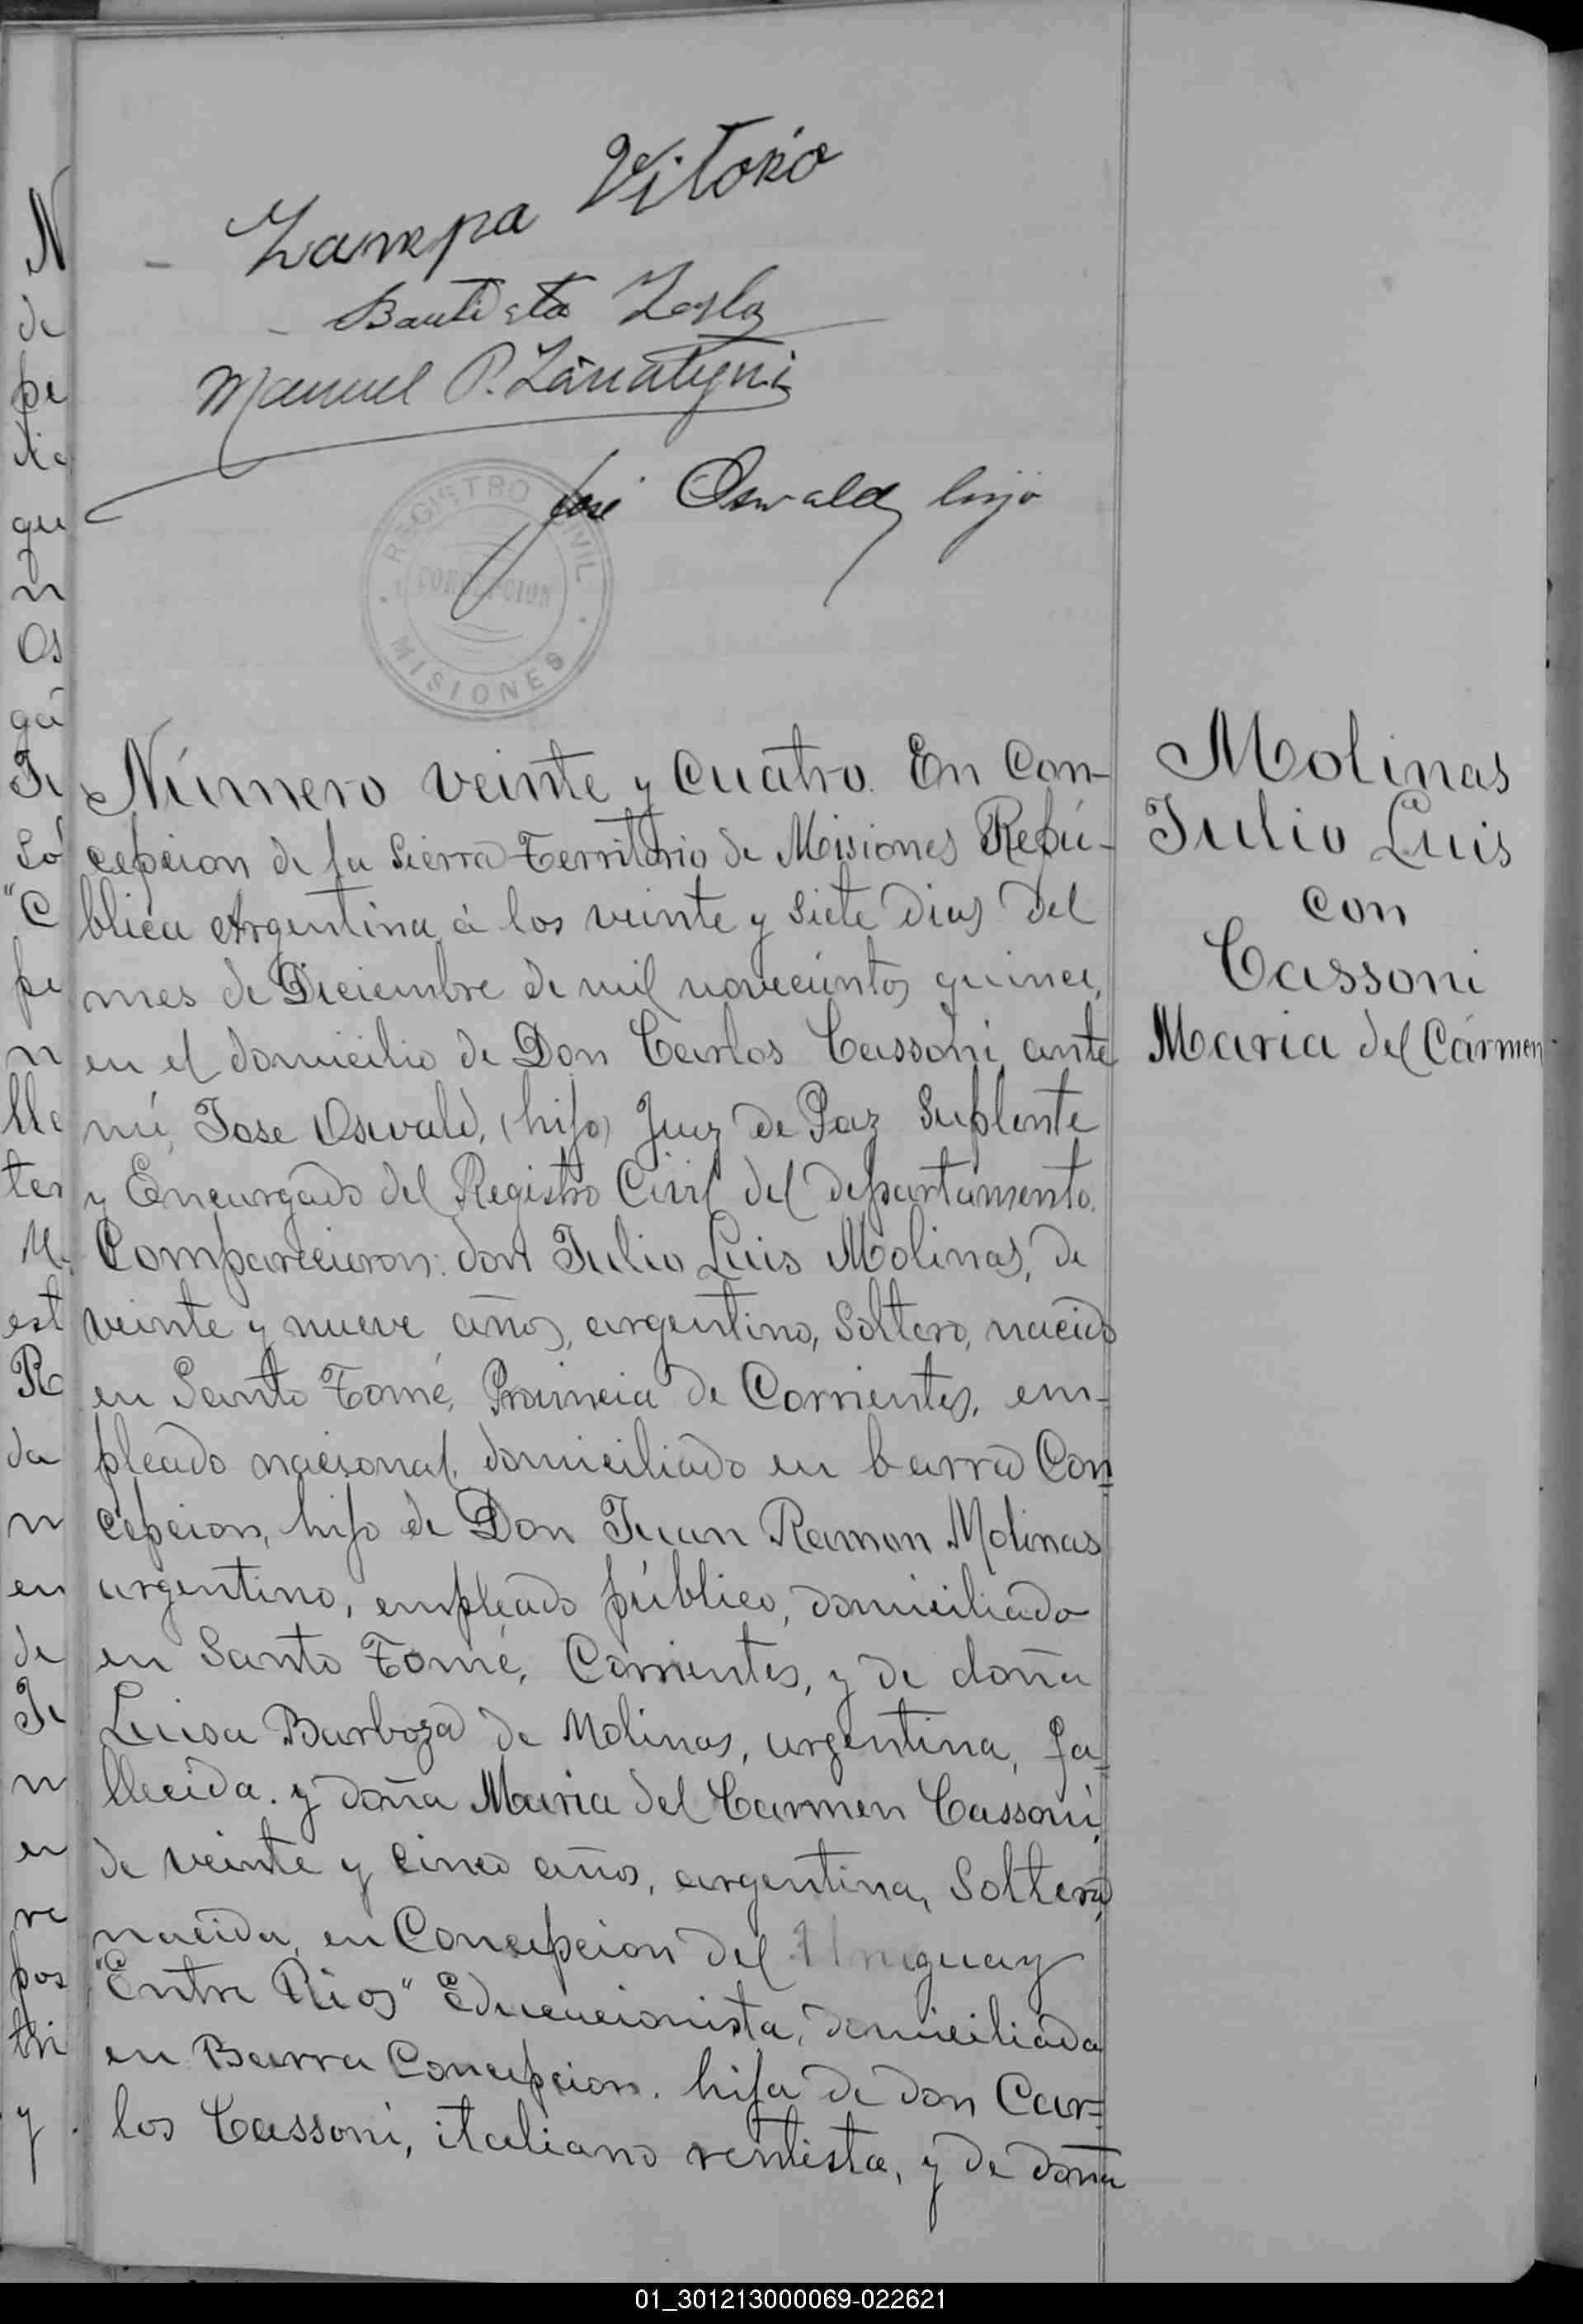 Zampa Vitorio
Bautista
Manuel P.
José Oswald hijo
REGISTRO CIVIL
CONCEPCION
MISIONES
Número veinte y cuatro. En Con-
cepcion de la Sierra Territorio de Misiones Repú-
blica Argentina, á los veinte y siete dias del
mes de Diciembre de mil novecientos quince,
en el domicilio de Don Carlos Cassoni, ante
mí, Jose Oswald, (hijo) Juez de Paz Suplente
y Encargado del Registro Civil del departamento.
Comparecieron: don Julio Luis Molinas, de
veinte y nueve años, argentino, Soltero, nacido
en Santo Tomé, Provincia de Corrientes, em-
pleado nacional, domiciliado en barra Con
cepcion, hijo de Don Juan Ramon Molinas
argentino, empleado público, domiciliado
en Santo Tomé, Corrientes, y de doña
Luisa Barboza de Molinas, argentina, fa-
llecida. y doña Maria del Carmen Cassoni,
de veinte y cinco años, argentina, Soltera,
nacida, en Concepcion del Uruguay
"Entre Rios" Educacionista, domiciliada
en Barra Concepcion. hija de don Car=
los Cassoni, italiano rentista, y de doña
Molinas
Julio Luis
con
Cassoni
Maria del Cármen
01_301213000069-022621